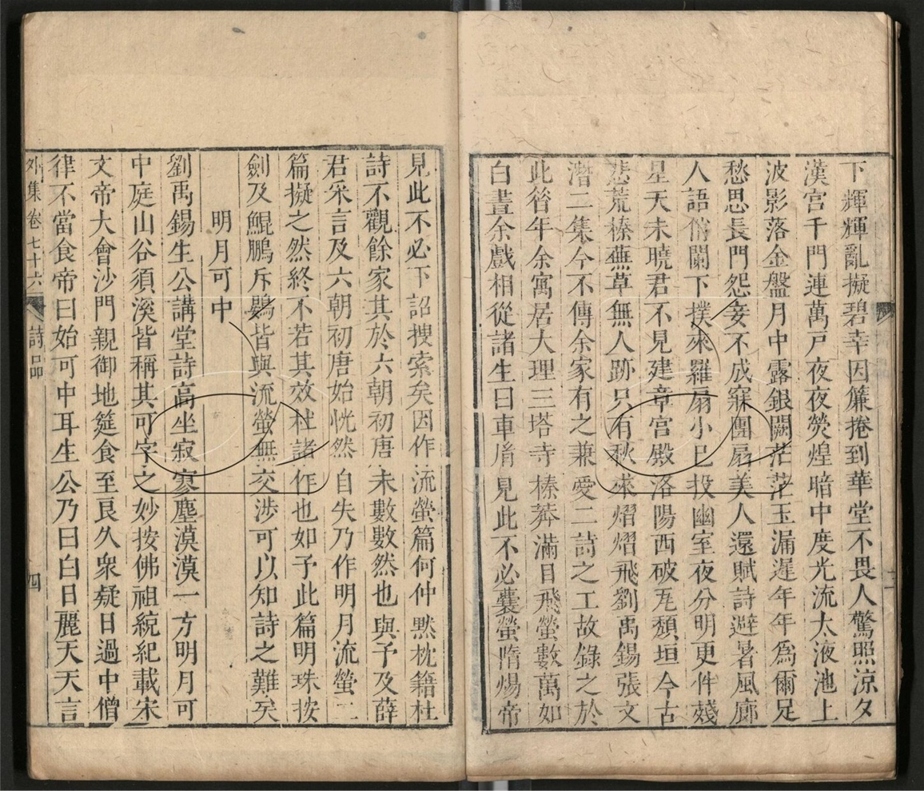 下輝輝亂擬碧幸因簾捲到華堂不畏人驚照涼夕
漢宮千門連萬戸夜夜熒煌暗中度光流太液池上
波影落金盤月中露銀闕茫茫玉漏遲年年為爾足
愁思長門怨妾不成寐團扇美人還賦詩避暑風廊
人語偕闌下撲來羅扇小已投幽室夜分明更伴殘
星天未曉君不見建章宮殿洛陽西破瓦頹垣今古
悲荒榛蕪草無人跡只有秋來熠熠飛劉禹錫張文
潛二集今不傳余家有之兼愛二詩之工故錄之於
此後年余寓居大理三塔寺榛莽滿目飛螢數萬如
白晝余戲相從諸生曰車胤見此不必囊螢隋煬帝
見此不必下詔搜索矣因作流螢篇何仲黙枕籍杜
詩不觀餘家其於六朝初唐未數數然也與予及薛
君采言及六朝初唐始恍然自失乃作明月流螢二
篇擬之然終不若其效杜諸作也如予此篇明珠按
劍及鯤鵬斥鷃皆與流螢無交涉可以知詩之難矣
明月可中
劉禹錫生公講堂詩高坐寂寥塵漠漠一方明月可
中庭山谷須溪皆稱其可字之妙按佛祖統紀載宋
文帝大會沙門親御地筵食至良久衆疑日過中僧
律不當食帝曰始可中耳生公乃曰白日麗天天言
外集卷七十六 詩品 四